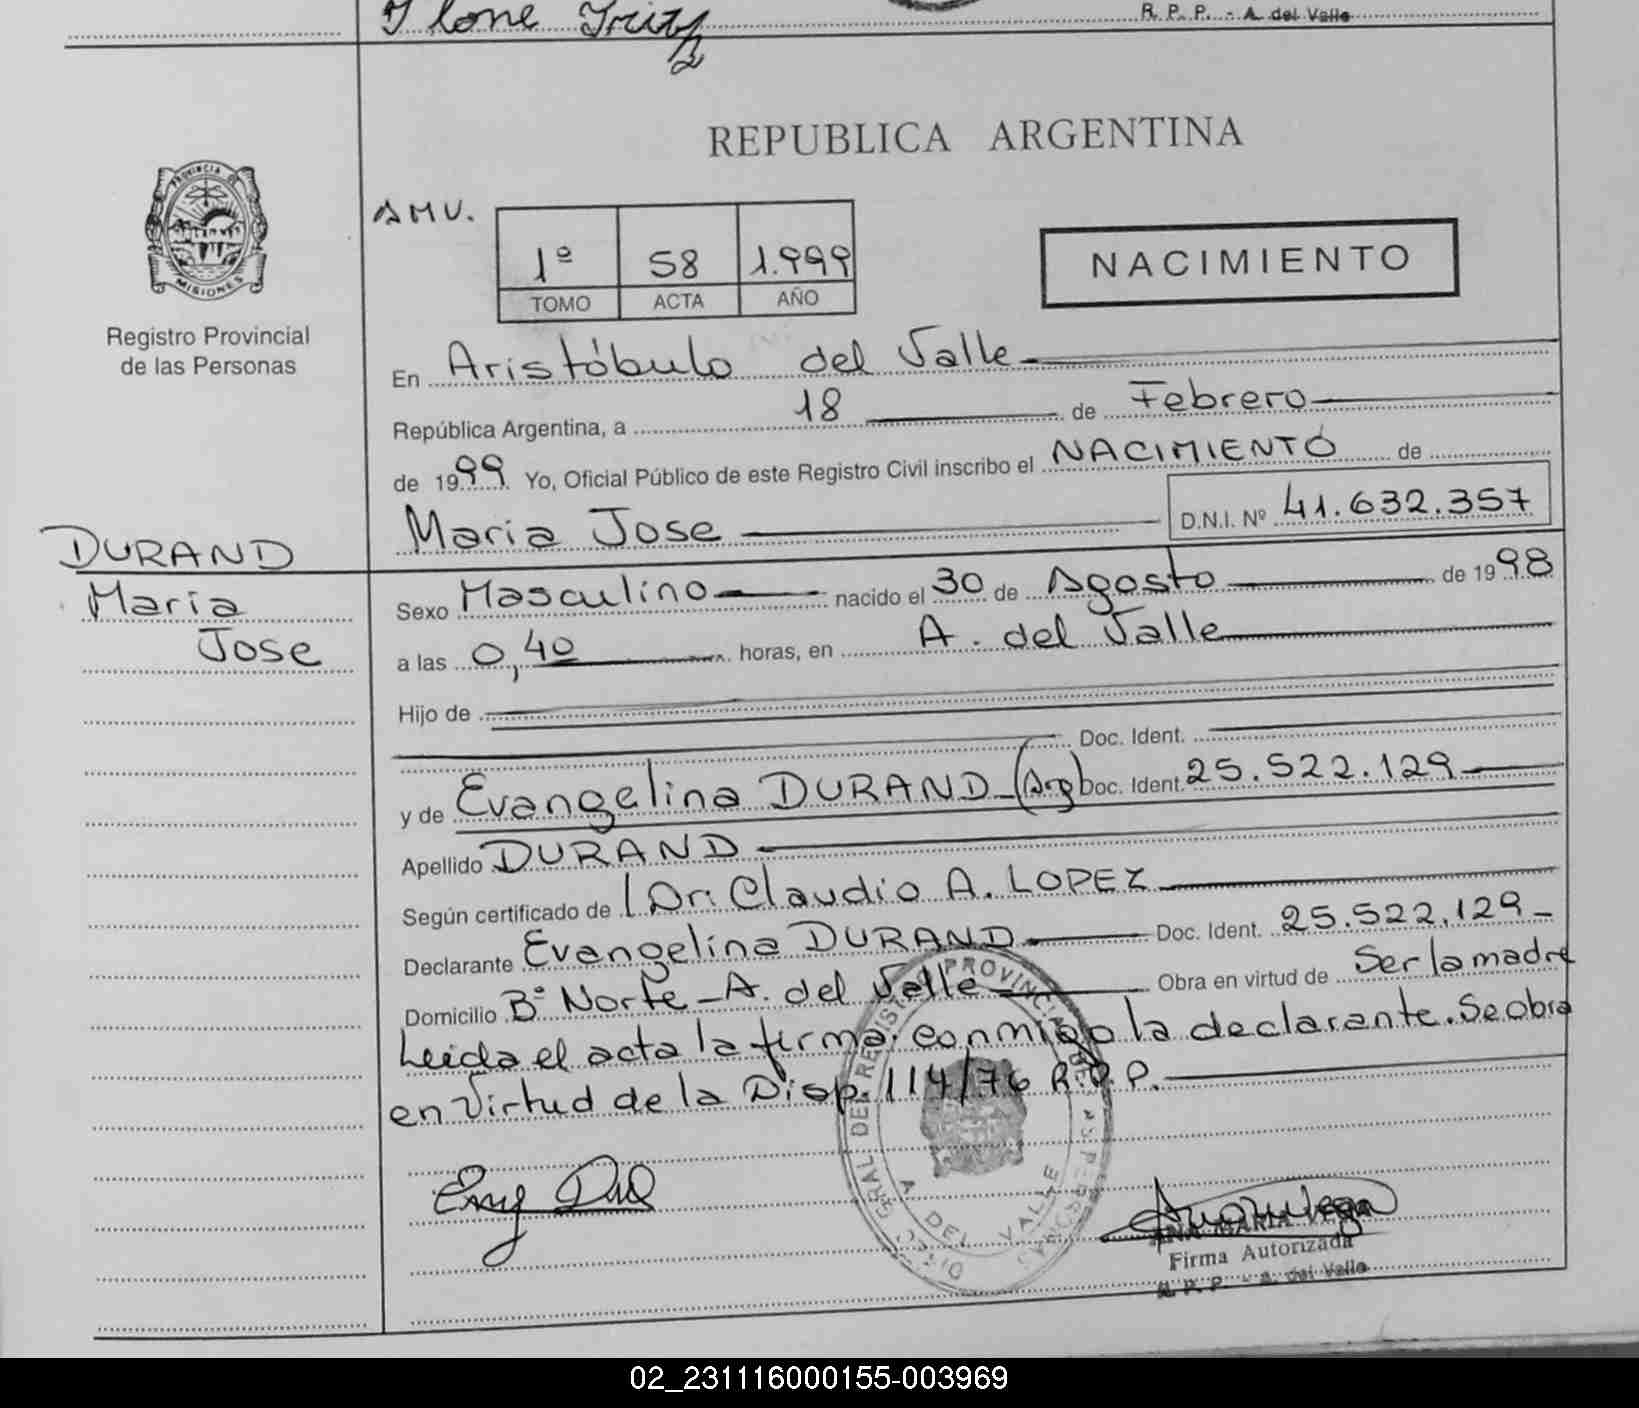 Ilone Fritz
R. P. P. - A. del Valle
REPUBLICA ARGENTINA
PROVINCIA DE
MISIONES
Registro Provincial
de las Personas
AMV.
1º 58 1.999
TOMO ACTA AÑO
NACIMIENTO
En Aristóbulo del Valle
República Argentina, a 18 de Febrero
de 1999 Yo, Oficial Público de este Registro Civil inscribo el NACIMIENTO de
Maria Jose D.N.I. Nº 41.632.357
DURAND
Maria
Jose
Sexo Masculino nacido el 30 de Agosto de 1998
a las 0,40 horas, en A. del Valle
Hijo de
Doc. Ident.
y de Evangelina DURAND (Arg) Doc. Ident. 25.522.129
Apellido DURAND
Según certificado de Dr. Claudio A. LOPEZ
Declarante Evangelina DURAND Doc. Ident. 25.522.129
Domicilio Bº Norte - A. del Valle Obra en virtud de Ser la madre
Leida el acta la firma conmigo la declarante. Se obra
en Virtud de la Disp. 114/76 R.P.P.
A DEL VALLE
ANA MARIA VEGA
Firma Autorizada
R. P. P. - A. del Valle
02_231116000155-003969